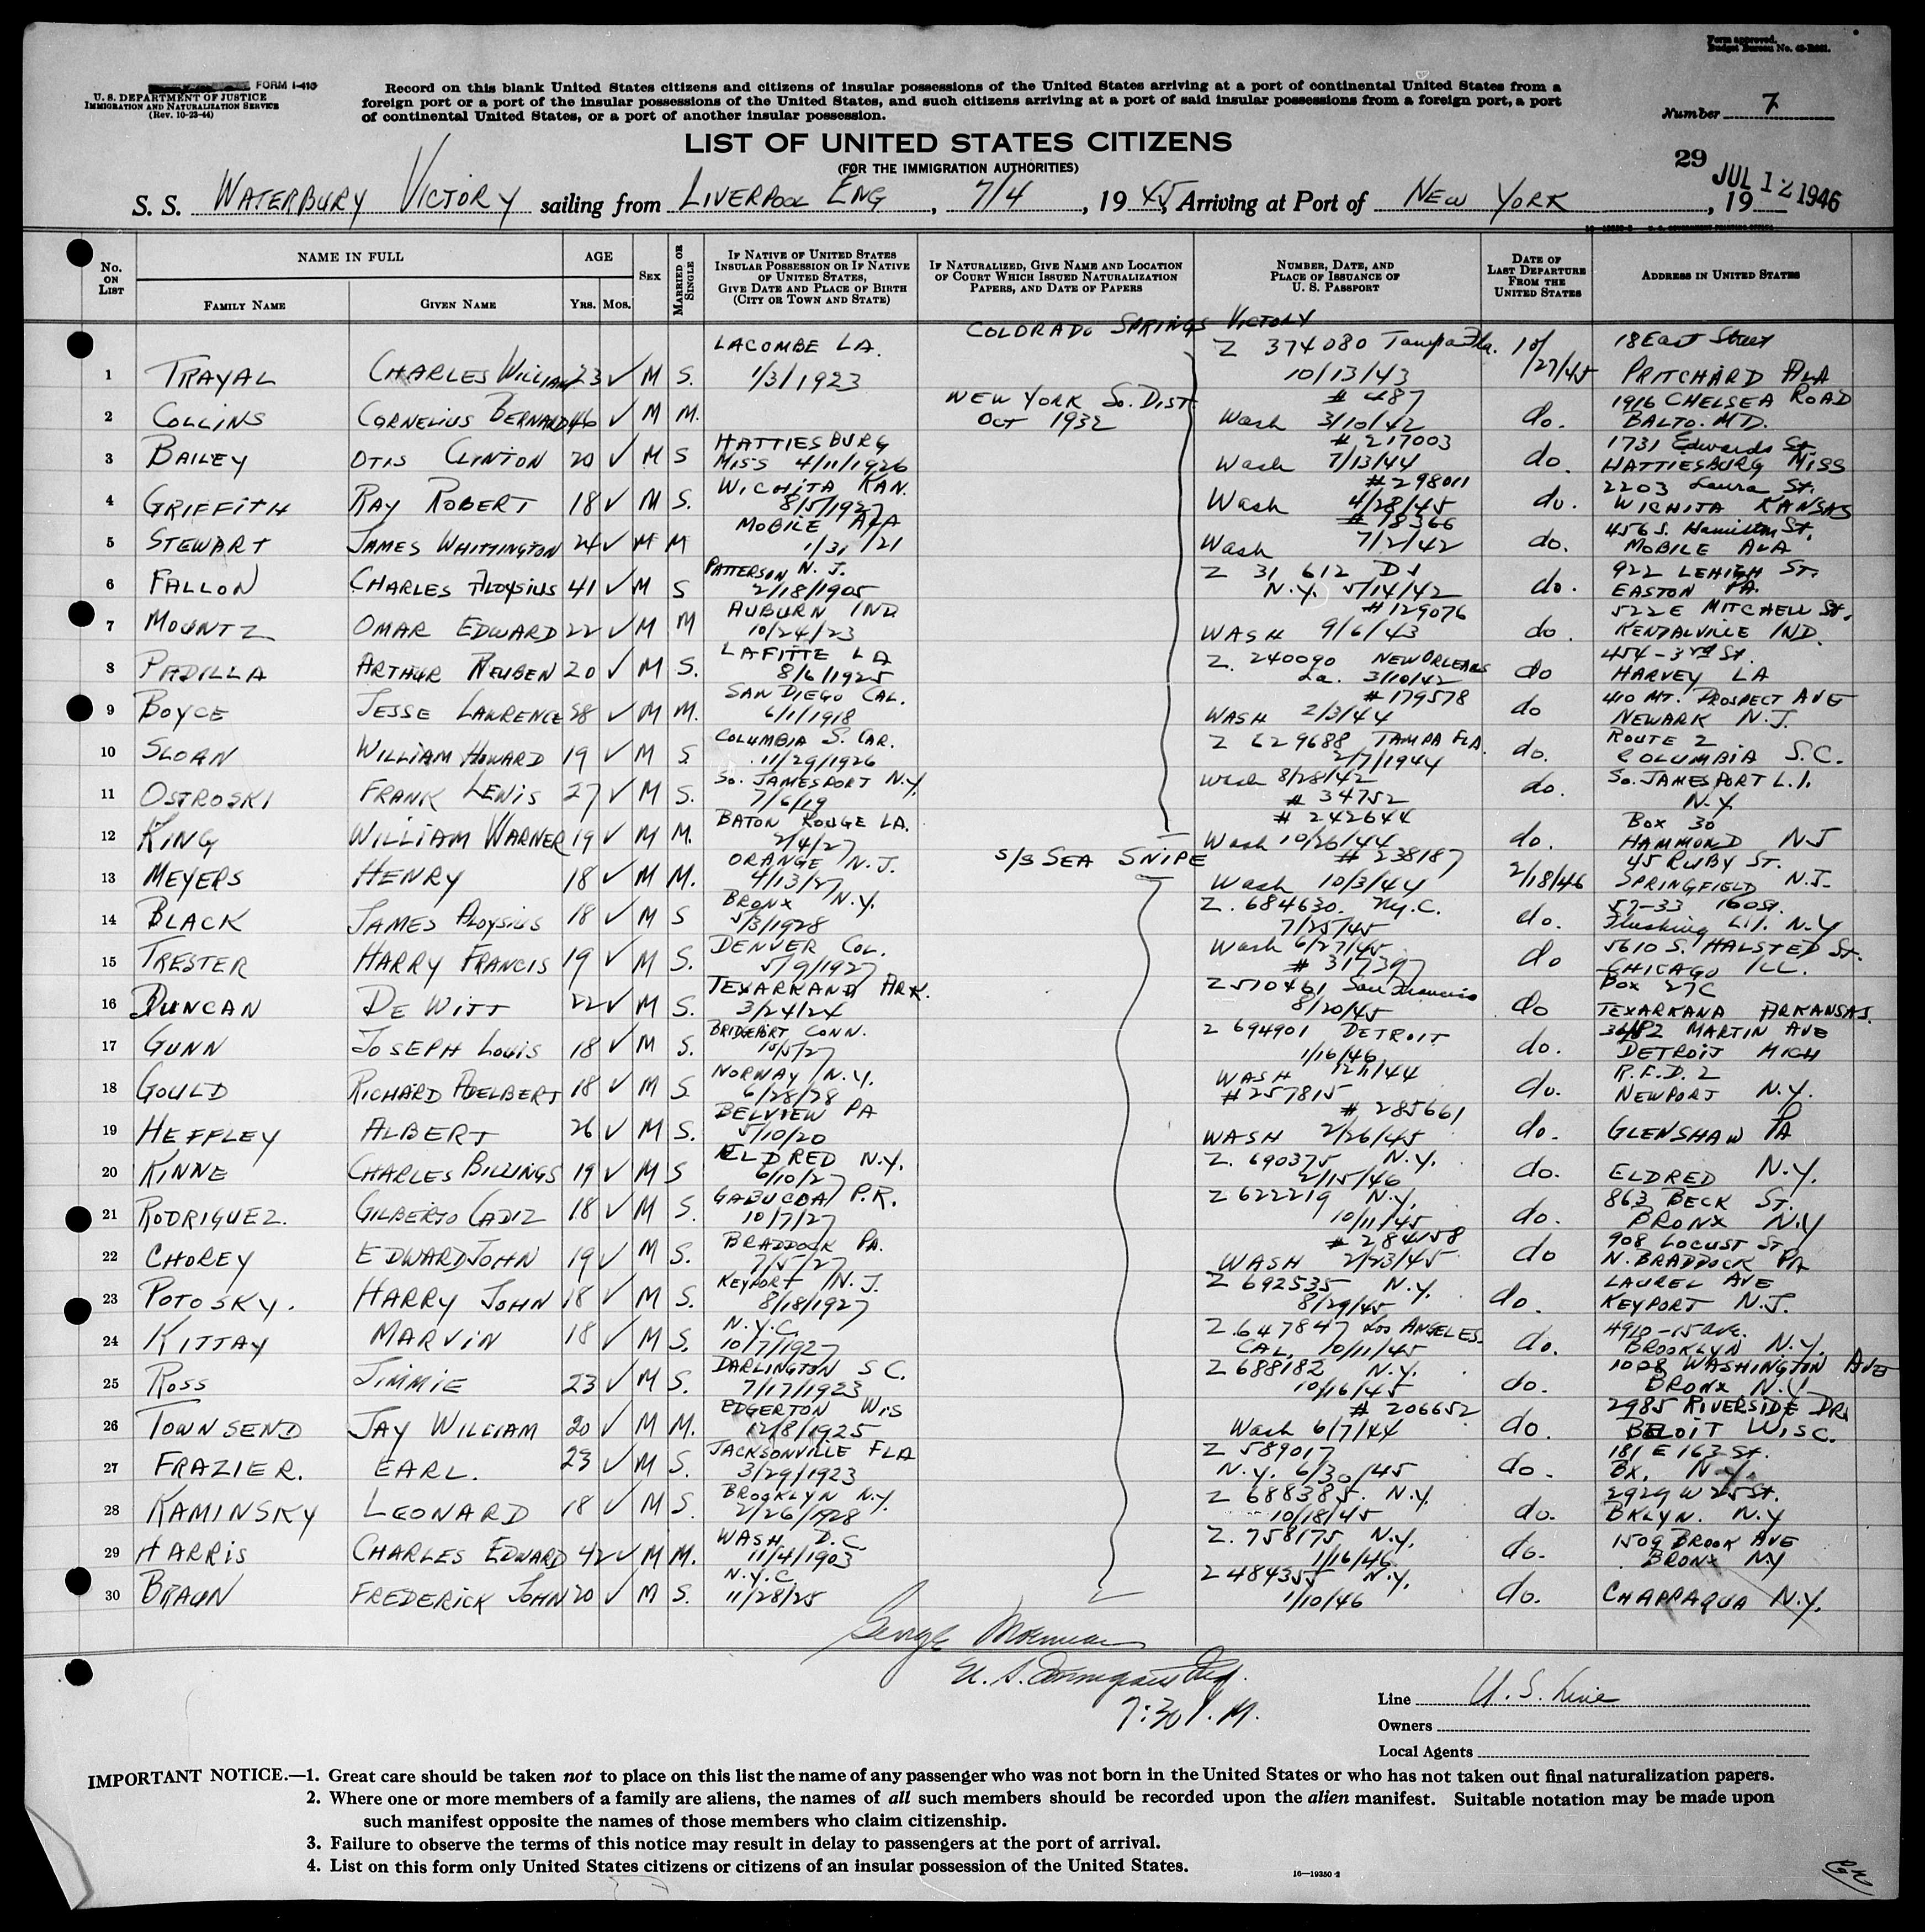 Form approved.
Budget Bureau No. 43-R061.
FORM I-410
U. S. DEPARTMENT OF JUSTICE
IMMIGRATION AND NATURALIZATION SERVICE
(Rev. 10-23-44)
Record on this blank United States citizens and citizens of insular possessions of the United States arriving at a port of continental United States from a
foreign port or a port of the insular possessions of the United States, and such citizens arriving at a port of said insular possessions from a foreign port, a port
of continental United States, or a port of another insular possession.
Number 7
LIST OF UNITED STATES CITIZENS
(FOR THE IMMIGRATION AUTHORITIES)
29
S. S. WATERBURY VICTORY sailing from LIVERPOOL ENG, 7/4, 1945, Arriving at Port of NEW YORK, 19 JUL 12 1946
No. ON LIST
NAME IN FULL
FAMILY NAME
GIVEN NAME
AGE
Yrs. Mos.
SEX
MARRIED OR SINGLE
IF NATIVE OF UNITED STATES INSULAR POSSESSION OR IF NATIVE OF UNITED STATES, GIVE DATE AND PLACE OF BIRTH (CITY OR TOWN AND STATE)
IF NATURALIZED, GIVE NAME AND LOCATION OF COURT WHICH ISSUED NATURALIZATION PAPERS, AND DATE OF PAPERS
NUMBER, DATE, AND PLACE OF ISSUANCE OF U. S. PASSPORT
DATE OF LAST DEPARTURE FROM THE UNITED STATES
ADDRESS IN UNITED STATES
COLORADO SPRINGS VICTORY
1 TRAYAL CHARLES WILLIAM 23 ✓ M S. LACOMBE LA. 1/3/1923 Z 374080 Tampa Fla. 10/13/43 10/27/45 18 East Street PRITCHARD ALA
2 COLLINS CORNELIUS BERNARD 46 ✓ M M. NEW YORK So. DIST OCT 1932 # 487 Wash 3/10/42 do. 1916 CHELSEA ROAD BALTO. MD.
3 BAILEY OTIS CLINTON 20 ✓ M S HATTIESBURG MISS 4/11/1926 # 217003 Wash 7/13/44 do. 1731 Edwards St. HATTIESBURG MISS
4 GRIFFITH RAY ROBERT 18 ✓ M S. WICHITA KAN. 8/5/1927 # 298011 Wash 4/28/45 do. 2203 Laura St. WICHITA KANSAS
5 STEWART JAMES WHITTINGTON 24 ✓ M M MOBILE ALA 1/31/21 # 18366 Wash 7/2/42 do. 456 S. Hamilton St. MOBILE ALA
6 FALLON CHARLES ALOYSIUS 41 ✓ M S PATTERSON N. J. 2/18/1905 Z 31 612 D1 N.Y. 5/14/42 do. 922 LEHIGH ST. EASTON PA.
7 MOUNTZ OMAR EDWARD 22 ✓ M M AUBURN IND 10/24/23 # 129076 WASH 9/6/43 do. 522 E MITCHELL St. KENDALVILLE IND.
8 PADILLA ARTHUR REUBEN 20 ✓ M S. LAFITTE LA 8/6/1925 Z. 240090 NEW ORLEANS La. 3/10/42 do 454-3rd St. HARVEY LA
9 BOYCE JESSE LAWRENCE 28 ✓ M M. SAN DIEGO CAL. 6/1/1918 # 179578 WASH 2/3/44 do 410 MT. PROSPECT AVE NEWARK N.J.
10 SLOAN WILLIAM HOWARD 19 ✓ M S COLUMBIA S. CAR. 11/29/1926 Z 629688 TAMPA FLA. 2/7/1944 do. ROUTE 2 COLUMBIA S.C.
11 OSTROSKI FRANK LEWIS 27 ✓ M S. SO. JAMESPORT N.Y. 7/6/19 Wash 8/28/42 # 34752 do. SO. JAMESPORT L.I. N.Y.
12 KING WILLIAM WARNER 19 ✓ M M. BATON ROUGE LA. 2/4/27 # 242644 Wash 10/26/44 do. BOX 30 HAMMOND NJ
S/S SEA SNIPE
13 MEYERS HENRY 18 ✓ M M. ORANGE N.J. 4/13/27 # 238187 Wash 10/3/44 2/18/46 45 RUBY ST. SPRINGFIELD N.J.
14 BLACK JAMES ALOYSIUS 18 ✓ M S BRONX N.Y. 5/3/1928 Z. 684630. N.Y.C. 7/25/45 do. 57-33 160 St. Flushing L.I. N.Y
15 TRESTER HARRY FRANCIS 19 ✓ M S. DENVER COL. 5/9/1927 Wash 6/27/45 # 317397 do 5610 S. HALSTED St. CHICAGO ILL.
16 DUNCAN DE WITT 22 ✓ M S. TEXARKANA ARK. 3/24/24 Z 570461 San Francisco 8/20/45 do BOX 27C TEXARKANA ARKANSAS.
17 GUNN JOSEPH LOUIS 18 ✓ M S. BRIDGEPORT CONN. 10/5/27 Z 694901 DETROIT 1/16/46 do. MARTIN AVE DETROIT MICH
18 GOULD RICHARD ADELBERT 18 ✓ M S NORWAY N.Y. 6/28/28 WASH 12/1/44 # 257815 do. R.F.D. 2 NEWPORT N.Y.
19 HEFFLEY ALBERT 26 ✓ M S. BELVIEW PA 5/10/20 # 285661 WASH 2/26/45 do. GLENSHAW PA
20 KINNE CHARLES BILLINGS 19 ✓ M S ELDRED N.Y. 6/10/27 Z. 690375 N.Y. 2/15/46 do. ELDRED N.Y.
21 RODRIGUEZ. GILBERTO CADIZ 18 ✓ M S. GABUCOA P.R. 10/7/27 Z 622219 N.Y. 10/11/45 do. 863 BECK ST. BRONX N.Y
22 CHOREY EDWARD JOHN 19 ✓ M S. BRADDOCK PA. 7/5/27 # 284158 WASH 2/23/45 do 908 LOCUST ST N. BRADDOCK PA
23 POTOSKY. HARRY JOHN 18 ✓ M S. KEYPORT N.J. 8/18/1927 Z 692535 N.Y. 8/29/45 do. LAUREL AVE KEYPORT N.J.
24 KITTAY MARVIN 18 ✓ M S. N.Y.C. 10/7/1927 Z. 647847 LOS ANGELES. CAL. 10/11/45 do. 4910-15 ave. BROOKLYN N.Y.
25 ROSS JIMMIE 23 ✓ M S. DARLINGTON S C. 7/17/1923 Z 688182 N.Y. 10/16/45 do. 1028 WASHINGTON AVE BRONX N.Y.
26 TOWNSEND JAY WILLIAM 20 ✓ M M. EDGERTON WIS 12/8/1925 # 206652 Wash 6/7/44 do. 2985 RIVERSIDE DR. BELOIT WISC.
27 FRAZIER. EARL. 23 ✓ M S. JACKSONVILLE FLA 3/29/1923 Z 589017 N.Y. 6/30/45 do. 181 E 163 St. BX. N.Y.
28 KAMINSKY LEONARD 18 ✓ M S. BROOKLYN N.Y. 2/26/1928 Z 688385. N.Y. 10/18/45 do. 2929 W 25 St. BKLYN. N.Y
29 HARRIS CHARLES EDWARD 42 ✓ M M. WASH D.C. 11/4/1903 Z. 758175 N.Y. 1/16/46 do. 1509 BROOK AVE BRONX NY
30 BRAUN FREDERICK JOHN 20 ✓ M S. N.Y.C 11/28/25 Z 484355 N.Y. 1/10/46 do. CHAPPAQUA N.Y.
George
U. S.
7:30 P. M.
Line U. S. Line
Owners
Local Agents
IMPORTANT NOTICE.—1. Great care should be taken not to place on this list the name of any passenger who was not born in the United States or who has not taken out final naturalization papers.
2. Where one or more members of a family are aliens, the names of all such members should be recorded upon the alien manifest. Suitable notation may be made upon
such manifest opposite the names of those members who claim citizenship.
3. Failure to observe the terms of this notice may result in delay to passengers at the port of arrival.
4. List on this form only United States citizens or citizens of an insular possession of the United States.
16—19350-2